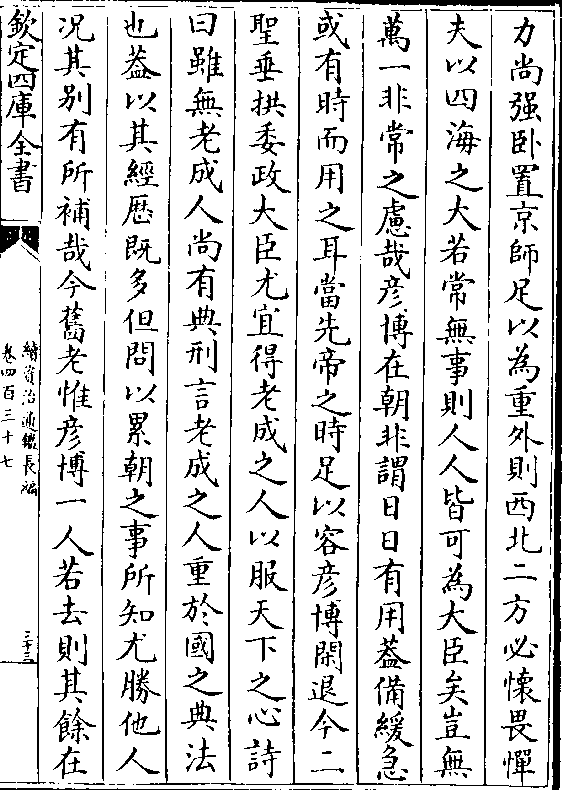 力尚强卧置京師足以為重外則西北二方必懷畏憚
夫以四海之大若常無事則人人皆可為大臣矣豈無
萬一非常之慮哉彦博在朝非謂日日有用葢備緩急
或有時而用之耳當先帝之時足以容彦博閑退今二
聖垂拱委政大臣尤宜得老成之人以服天下之心詩
曰雖無老成人尚有典刑言老成之人重於國之典法
也葢以其經歴既多但問以累朝之事所知尤勝他人
况其别有所補哉今舊老惟彦博一人若去則其餘在
欽定四庫全書
續資治通鑑長編
卷四百三十七
三十三